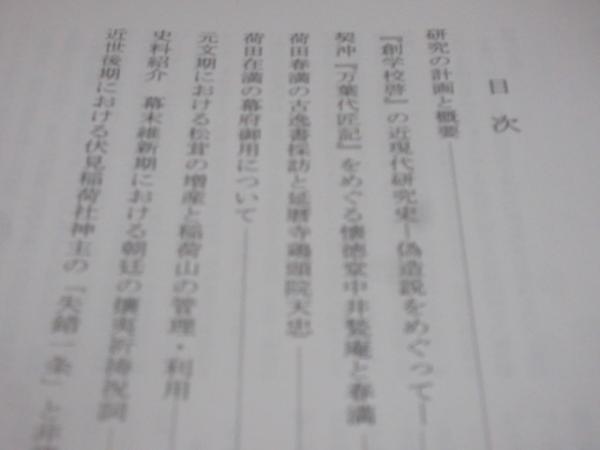 目次
研究の計画と概要
『創学校啓』の近現代研究史―偽造説をめぐって―
契沖『万葉代匠記』をめぐる懐徳堂中井甃庵と春満
荷田春満の古逸書採訪と延暦寺鶏頭院天忠
荷田在満の幕府御用について
元文期における松茸の増産と稲荷山の管理・利用
史料紹介 幕末維新期における朝廷の攘夷祈祷祝詞
近世後期における伏見稲荷社神主の「失錯一条」と